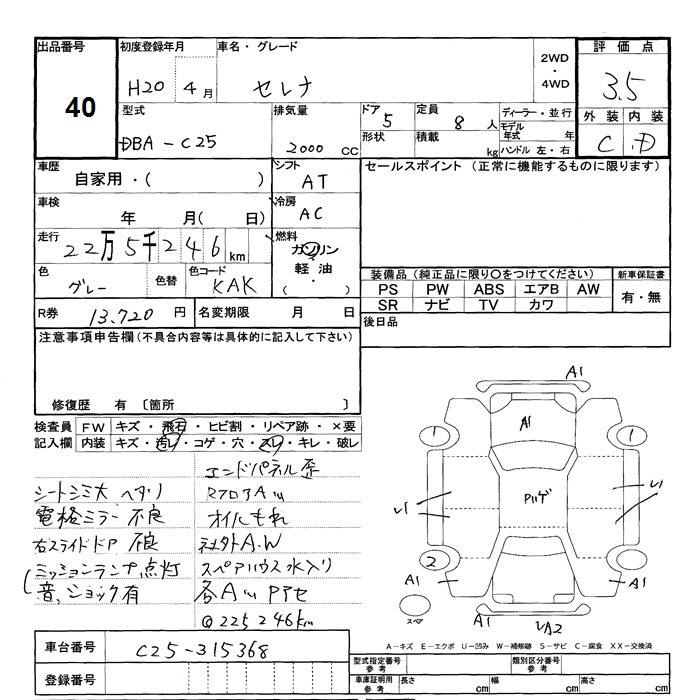 出品番号
40
初度登録年月
H20 4月
車名・グレード
セレナ
2WD
・
4WD
評価点
3.5
外装 内装
C D
型式
DBA-C25
排気量
2000 CC
ドア 5
形状
定員 8 人
積載 kg
ディーラー・並行
モデル年式 年
ハンドル 左・右
車歴
自家用・( )
シフト
AT
セールスポイント (正常に機能するものに限ります)
車検
年 月( 日)
冷房
AC
走行
22万5千246 km
燃料
ガソリン
軽油
( ・ )
色
グレー
色替
色コード
KAK
装備品(純正品に限り〇をつけてください)
新車保証書
PS PW ABS エアB AW
SR ナビ TV カワ
有・無
R券 13.720 円
名変期限 月 日
後日品
注意事項申告欄(不具合内容等は具体的に記入して下さい)
修復歴 有 〔箇所 〕
検査員記入欄
FW キズ・飛石・ヒビ割・リペア跡・×要
内装 キズ・汚レ・コゲ・穴・スレ・キレ・破レ
シートシミ大 ヘタリ
電格ミラー不良
右スライドドア 不良
ミッションランプ点灯
音、ショック有
エンドパネル歪
RフロアAU
オイルもれ
社外A.W
スペアハウス水入り
各AU
@225246km
A1
A1
1
1
U1
U1
2
A1
A1
スペア
A1
A2
A-キズ E-エクボ U-凹み W-補修跡 S-サビ C-腐食 XX-交換済
車台番号
C25-315368
登録番号
型式指定番号
参考
類別区分番号
参考
車庫証明用
参考
長さ cm
幅 cm
高さ cm